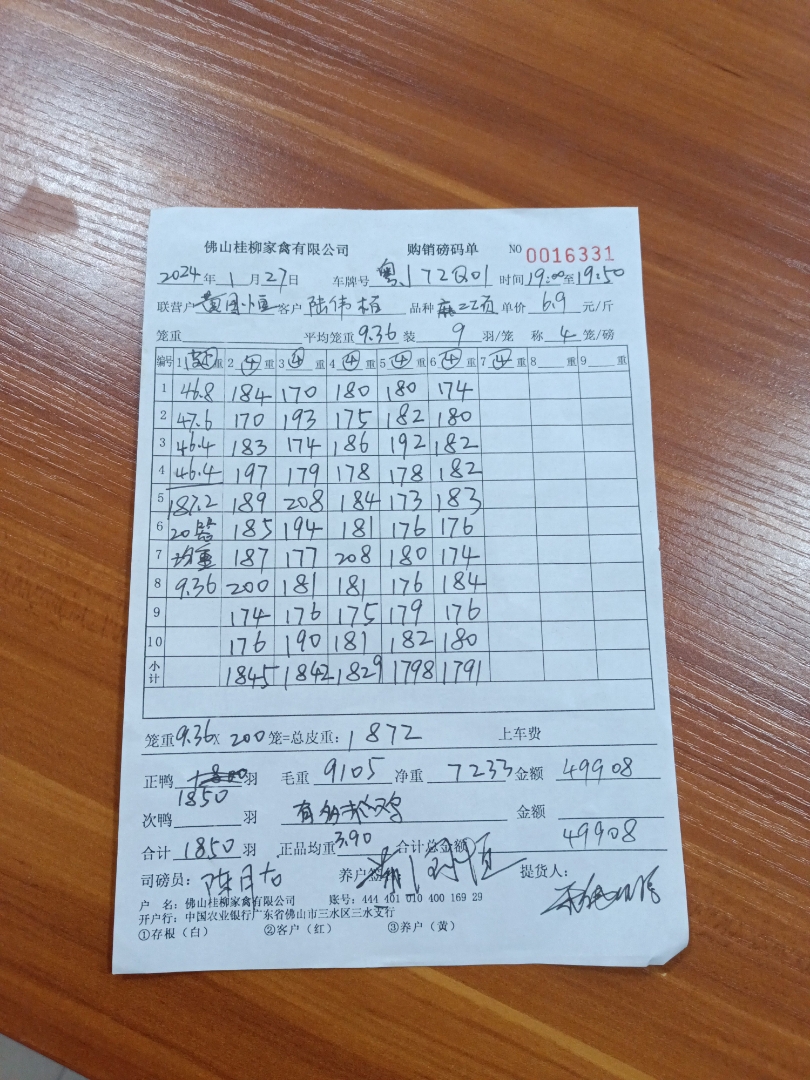 佛山桂柳家禽有限公司 购销磅码单 NO 0016331
2024年1月27日 车牌号 粤J72Q01 时间19:00至19:50
联营户 客户 陆伟 品种 单价 6.9 元/斤
笼重 平均笼重 9.36 装 9 羽/笼 称 4 笼/磅
编号 1 重 2 ④ 重 3 ④ 重 4 ④ 重 5 ④ 重 6 ④ 重 7 ④ 重 8 重 9 重
1 46.8 184 170 180 180 174
2 47.6 170 193 175 182 180
3 46.4 183 174 186 192 182
4 46.4 197 179 178 178 182
5 187.2 189 208 184 173 183
6 20 185 194 181 176 176
7 187 177 208 180 174
8 9.36 200 181 181 176 184
9 174 176 175 179 176
10 176 190 181 182 180
小计 1845 1842 1829 1798 1791
笼重9.36×200笼=总皮重:1872 上车费
正鸭 羽 毛重 9105 净重 7233 金额 49908
1850
次鸭 羽 金额
合计 1850 羽 正品均重 3.90 合计总金额 49908
司磅员: 陈月 养户签 提货人:
户 名: 佛山桂柳家禽有限公司 账号: 444 401 010 400 169 29
开户行: 中国农业银行广东省佛山市三水区三水支行
①存根(白) ②客户(红) ③养户(黄)